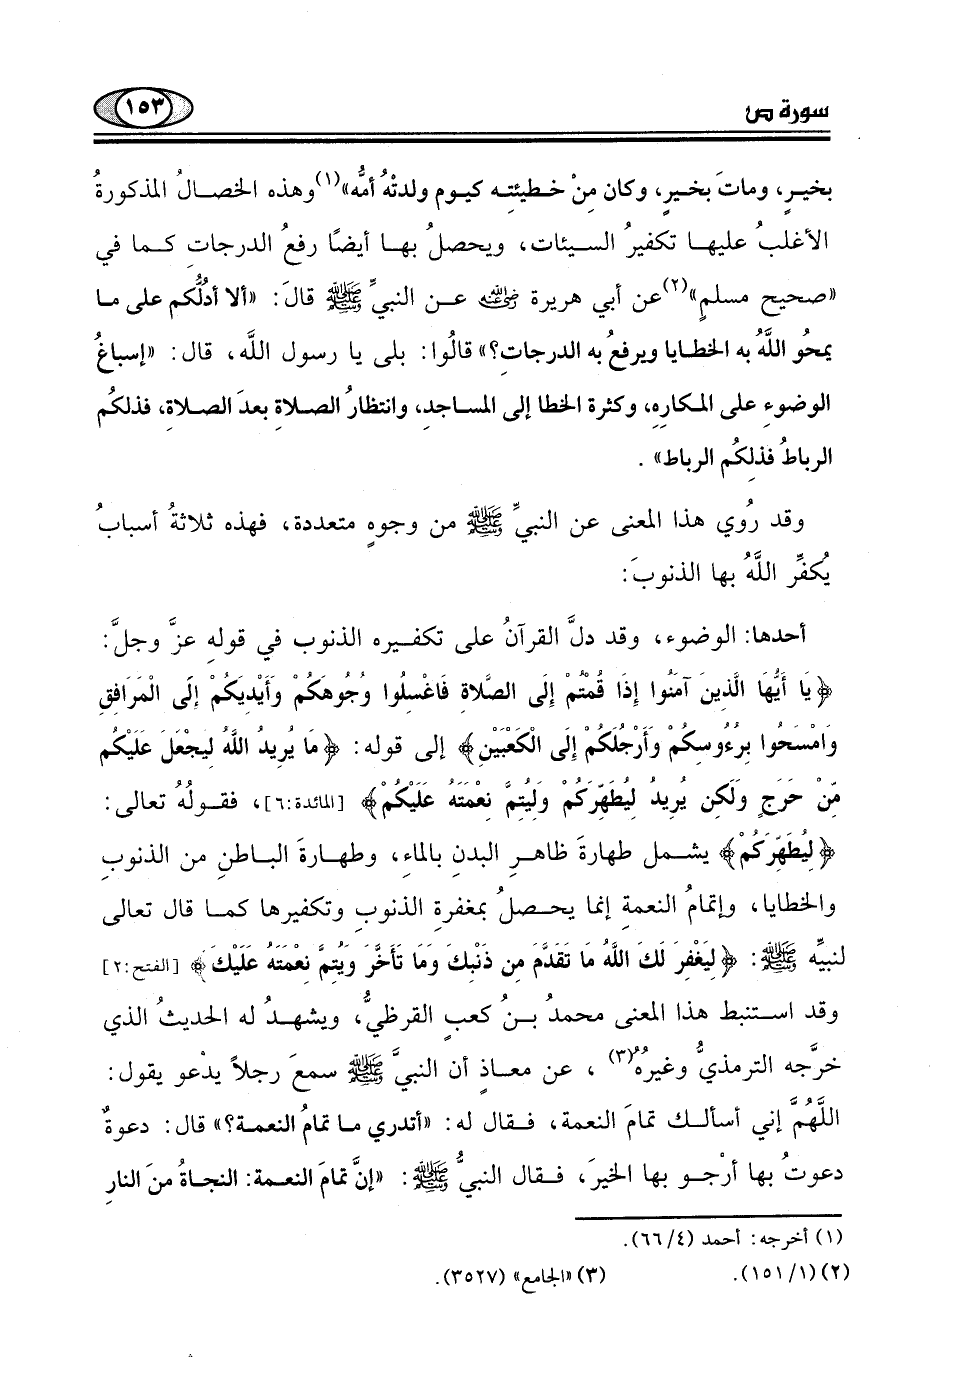 سورة ص
١٥٣
بخيرٍ، وماتَ بخيرٍ، وكان مِنْ خطيئتِه كيوم ولدتْهُ أمُّه»(١) وهذه الخصالُ المذكورةُ
الأغلبُ عليها تكفيرُ السيئات، ويحصلُ بها أيضًا رفعُ الدرجاتِ كما في
«صحيح مسلمٍ»(٢) عن أبي هريرة رضي الله عنه عن النبيِّ ﷺ قالَ: «ألا أدلُّكم على ما
يمحُو اللَّهُ به الخطايا ويرفعُ به الدرجاتِ؟» قالُوا: بلى يا رسول الله، قال: «إسباغُ
الوضوءِ على المكارِهِ، وكثرة الخطا إلى المساجدِ، وانتظارُ الصلاةِ بعدَ الصلاةِ، فذلكم
الرباطُ فذلِكُم الرباط» .
وقد رُوي هذا المعنى عن النبيِّ ﷺ من وجوهٍ متعددة، فهذه ثلاثةُ أسبابُ
يُكفِّر اللَّهُ بها الذنوبَ:
أحدها: الوضوء، وقد دلَّ القرآنُ على تكفيره الذنوب في قولهِ عزَّ وجلَّ:
﴿يَا أَيُّهَا الَّذِينَ آمَنُوا إِذَا قُمْتُمْ إِلَى الصَّلاةِ فَاغْسِلُوا وُجُوهَكُمْ وَأَيْدِيَكُمْ إِلَى الْمَرَافِقِ
وَامْسَحُوا بِرُءُوسِكُمْ وَأَرْجُلَكُمْ إِلَى الْكَعْبَيْنِ﴾ إلى قوله: ﴿مَا يُرِيدُ اللَّهُ لِيَجْعَلَ عَلَيْكُم
مِّنْ حَرَجٍ وَلَكِن يُرِيدُ لِيُطَهِّرَكُمْ وَلِيُتِمَّ نِعْمَتَهُ عَلَيْكُمْ﴾ [المائدة:٦]، فقولُهُ تعالى:
﴿لِيُطَهِّرَكُمْ﴾ يشمل طهارةَ ظاهرِ البدنِ بالماءِ، وطهارةَ الباطنِ من الذنوبِ
والخطايا، وإتمامُ النعمةِ إنما يحصلُ بمغفرةِ الذنوبِ وتكفيرها كما قال تعالى
لنبيِّه ﷺ: ﴿لِيَغْفِرَ لَكَ اللَّهُ مَا تَقَدَّمَ مِن ذَنْبِكَ وَمَا تَأَخَّرَ وَيُتِمَّ نِعْمَتَهُ عَلَيْكَ﴾ [الفتح:٢]
وقد استنبط هذا المعنى محمدُ بنُ كعبٍ القرظيُّ، ويشهدُ له الحديثُ الذي
خرَّجه الترمذيُّ وغيرُهُ(٣) ، عن معاذٍ أن النبيَّ ﷺ سمعَ رجلاً يدْعو يقول:
اللَّهُمَّ إني أسألك تمامَ النعمة، فقال له: «أتدري ما تمامُ النعمة؟» قال: دعوةٌ
دعوتُ بها أرْجو بها الخيرَ، فقال النبيُّ ﷺ: «إنَّ تمامَ النعمة: النجاةُ منَ النارِ
(١) أخرجه: أحمد (٤/ ٦٦).
(٢) (١/ ١٥١). (٣) «الجامع» (٣٥٢٧).